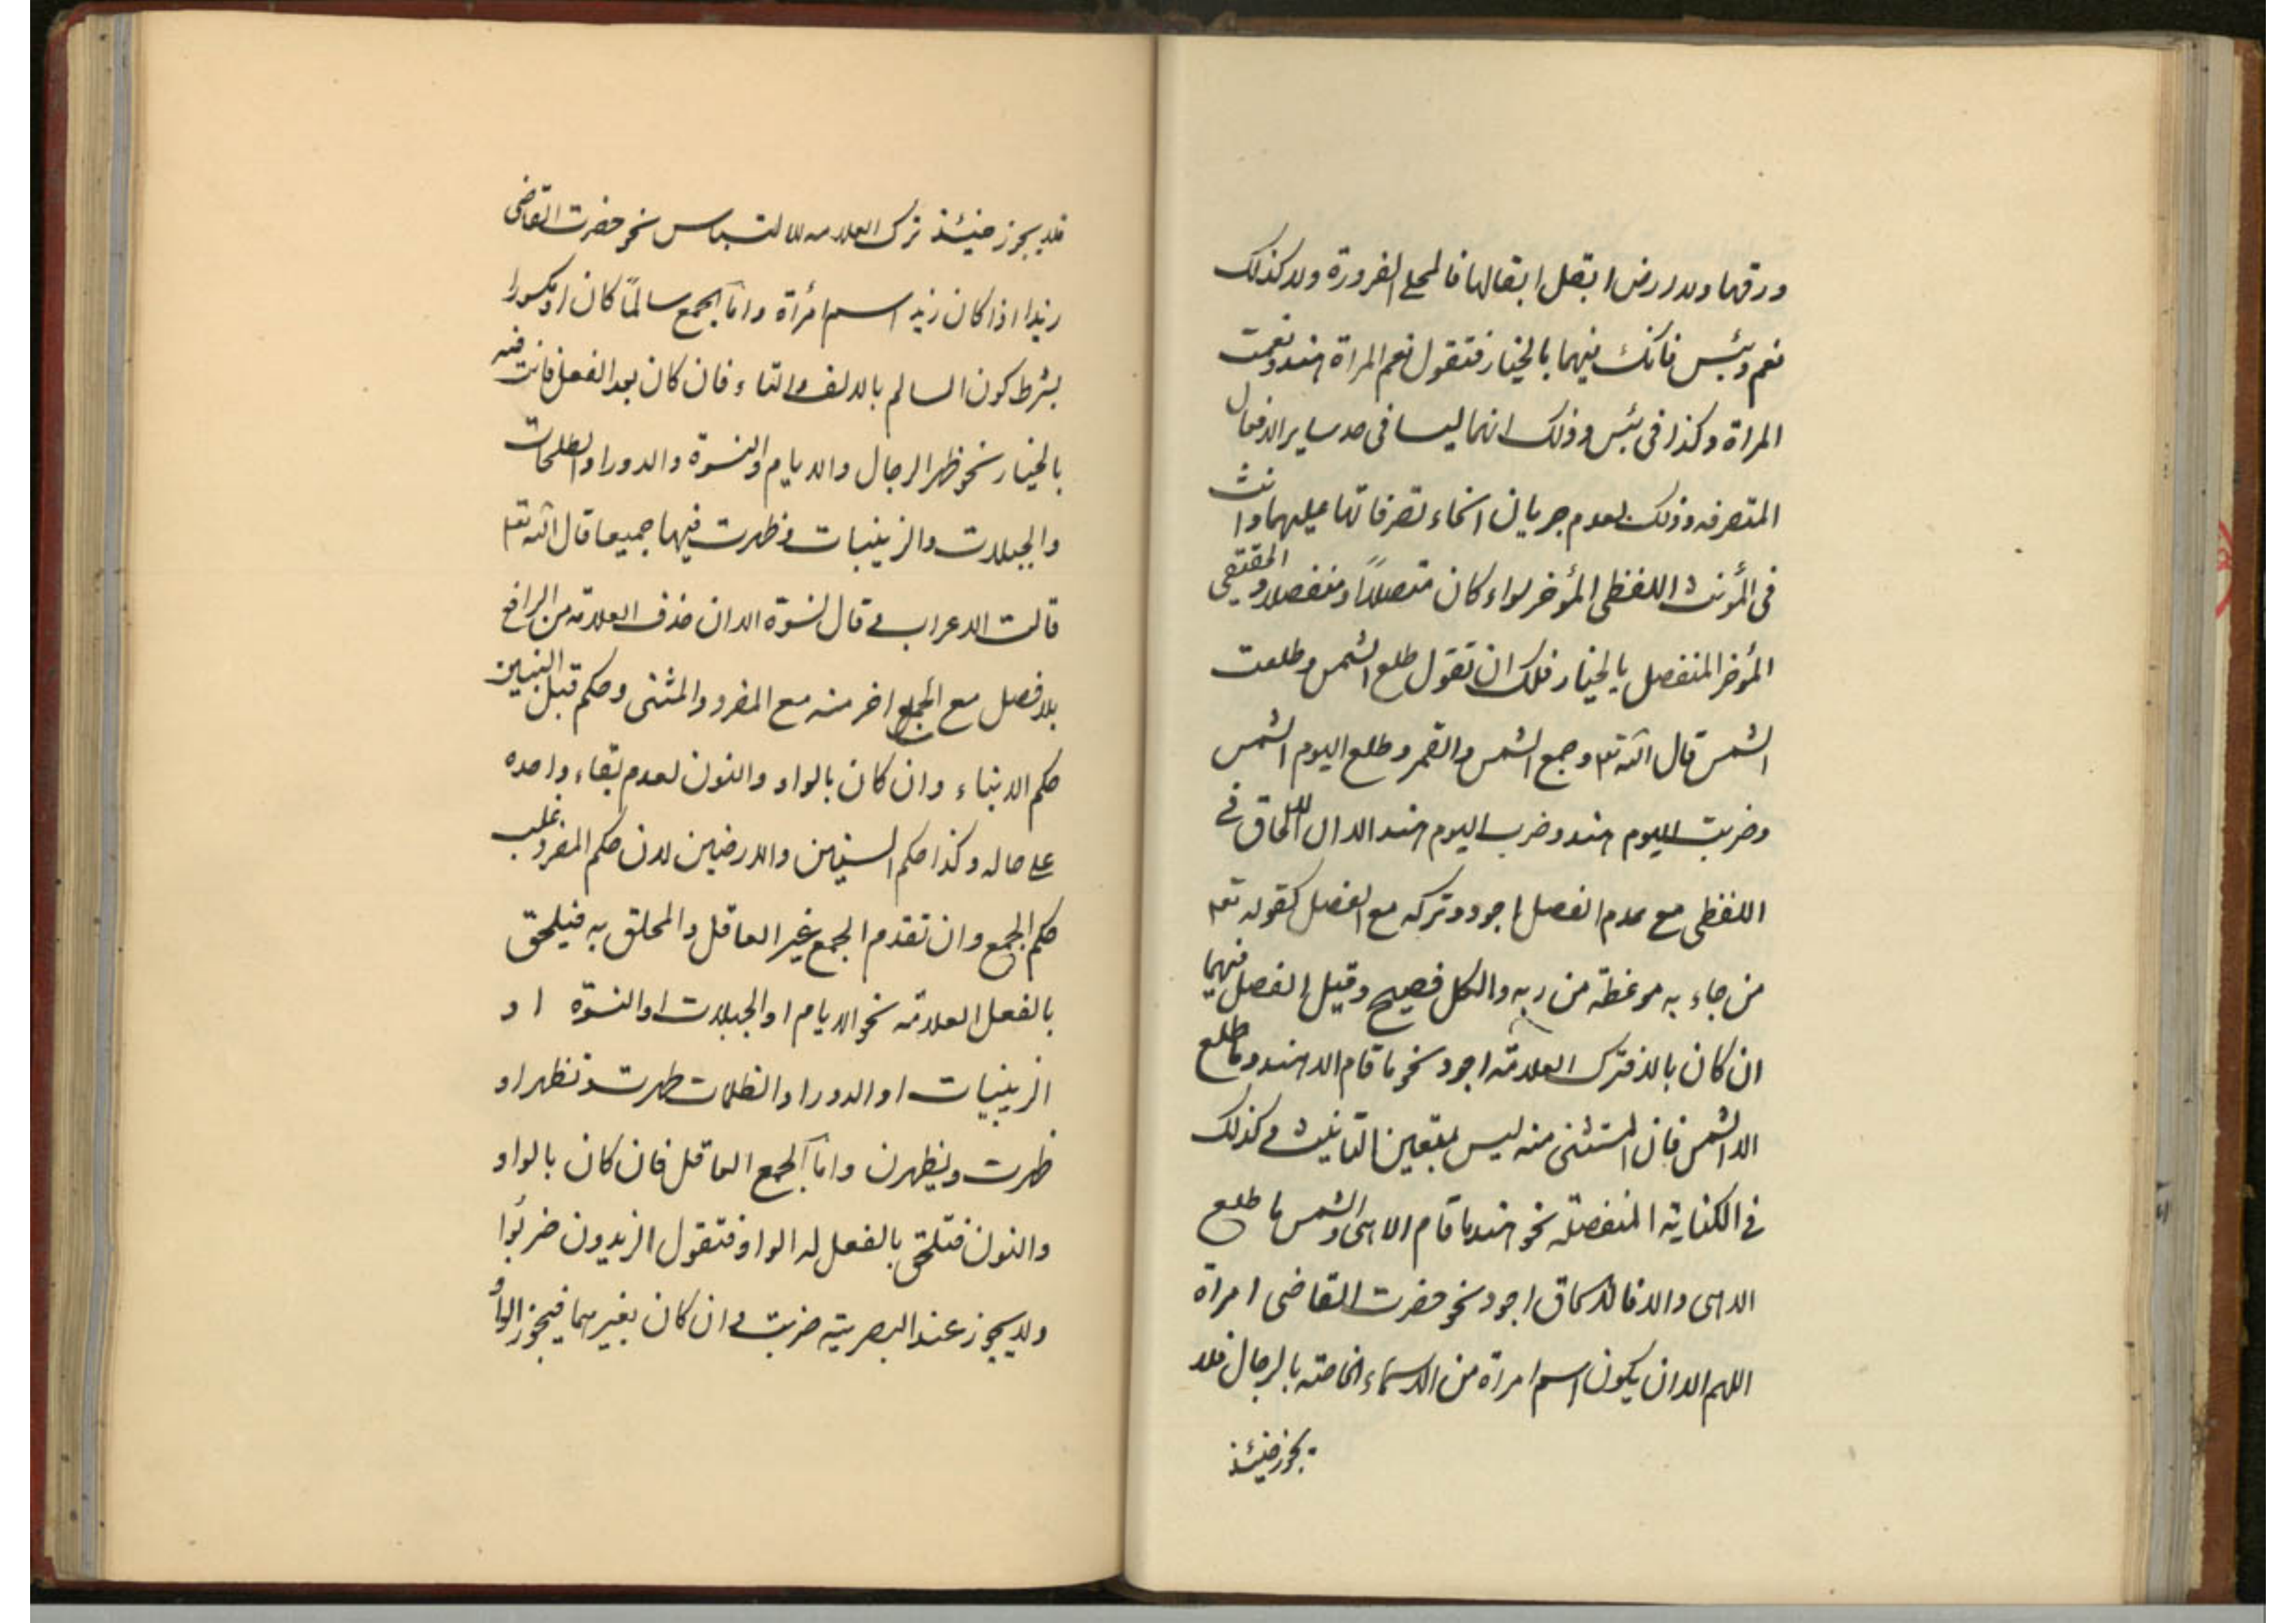 ودقها ولا ارض ابقل ابقالها فالمحل الضرورة ولا كذلك
نعم وبئس فانك فيهما بالخيار فتقول نعم المراة هند ونعمت
المراة وكذا فى بئس وذلك انهما ليسا فى حد ساير الافعال
المتصرفه وذلك لعدم جريان انحاء تصرفاتها عليهما وانت
فى المؤنث اللفظى المؤخر سواء كان متصلاً او منفصلا و الحقيقى
المؤخر المنفصل بالخيار فلك ان تقول طلع الشمس وطلعت
الشمس قال الله تعا وجمع الشمس والقمر وطلع اليوم الشمس
وضربت اليوم هند وضرب اليوم هند الا ان الالحاق فى
اللفظى مع عدم الفصل اجود وتركه مع الفصل كقوله تعا
من جاء به موعظة من ربه والكل فصيح وقيل الفصل فيهما
ان كان بالا فترك العلامة اجود نحو ما قام الا هند وما طلع
الا الشمس فان المستثنى منه ليس بمتعين التانيث وكذلك
فى الكناية المنفصلة نحو هند ما قام الا هى والشمس ما طلع
الا هى والا فالالحاق اجود نحو حضرت القاضى امراة
اللهم الا ان يكون اسم امراة من الاسماء الخاصة بالرجال فلا
يجوز حينئذ
فلا يجوز حينئذ ترك العلامه للالتباس نحو حضرت القاضى
زيد اذا كان زيد اسم امرأة واما الجمع سالماً كان او مكسورا
بشرط كون السالم بالالف والتاء فان كان بعد الفعل فانت فيه
بالخيار نحو ظهر الرجال والايام والنسوة والدور او الطلحات
والجبلات والزينبات وظهرت فيها جميعا قال الله تعا
قالت الاعراب و قال نسوة الا ان حذف العلامة من الرافع
بلا فصل مع الجمع اخر منه مع المفرد والمثنى وحكم قبل البنين
حكم الابناء وان كان بالواو والنون لعدم بقاء واحده
على حاله وكذا حكم السنين والارضين لان حكم المفرد غلب
حكم الجمع وان تقدم الجمع غير العاقل والمحلق به فيلحق
بالفعل العلامة نحو الايام او الجبلات او النسوة او
الزينبات او الدور او الظلمات ظهرت وتظهر او
ظهرت ويظهرن واما الجمع العاقل فان كان بالواو
والنون فتلحق بالفعل له الواو فتقول الزيدون ضربوا
ولا يجوز عند البصرية ضربت و ان كان بغيرهما فيجوز الواو